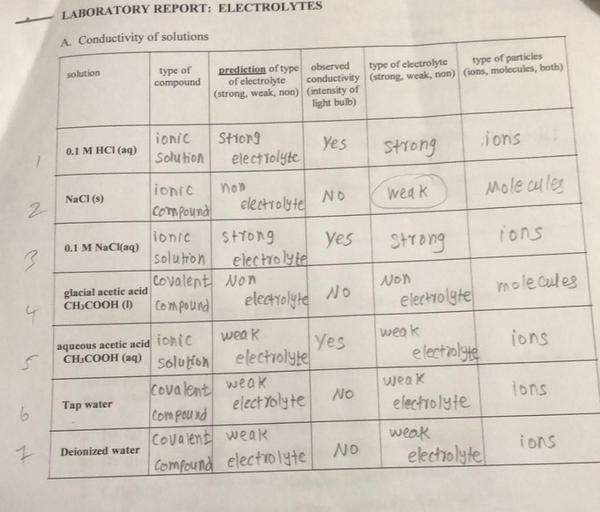 LABORATORY REPORT: ELECTROLYTES
A. Conductivity of solutions
solution type of compound prediction of type of electrolyte (strong, weak, non) observed conductivity (intensity of light bulb) type of electrolyte (strong, weak, non) type of particles (ions, molecules, both)
1 0.1 M HCl (aq) ionic solution Strong electrolyte Yes strong ions
2 NaCl (s) ionic compound non electrolyte NO weak Molecules
3 0.1 M NaCl(aq) ionic solution strong electrolyte Yes strong ions
4 glacial acetic acid CH₃COOH (l) Covalent Compound Non electrolyte NO Non electrolyte molecules
5 aqueous acetic acid CH₃COOH (aq) ionic solution weak electrolyte Yes weak electrolyte ions
6 Tap water Covalent compound weak electrolyte NO weak electrolyte ions
7 Deionized water Covalent compound weak electrolyte NO weak electrolyte ions